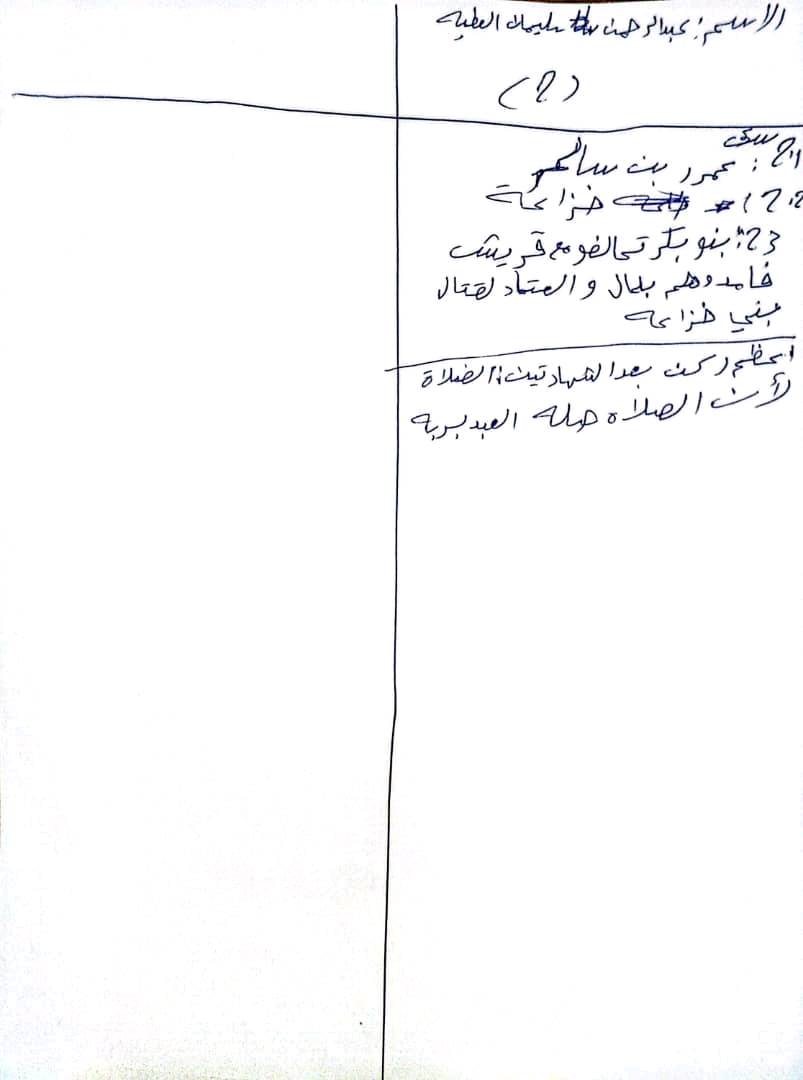 الاسم: عبدالرحمن سليمان العطيه
(2)
س2
21: عمرو بن سالم
22: خزاعة
23: بنو بكر تحالفو مع قريش
فامدوهم بلمال والعتاد لقتال
بني خزاعه
اعظم ركن بعد الشهادتين: الصلاة
لأن الصلاة صله العبد بربه